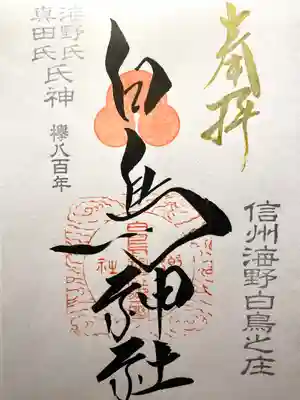 奉拝
信州海野白鳥之庄
白鳥神社
海野氏
真田氏
氏神
欅八百年